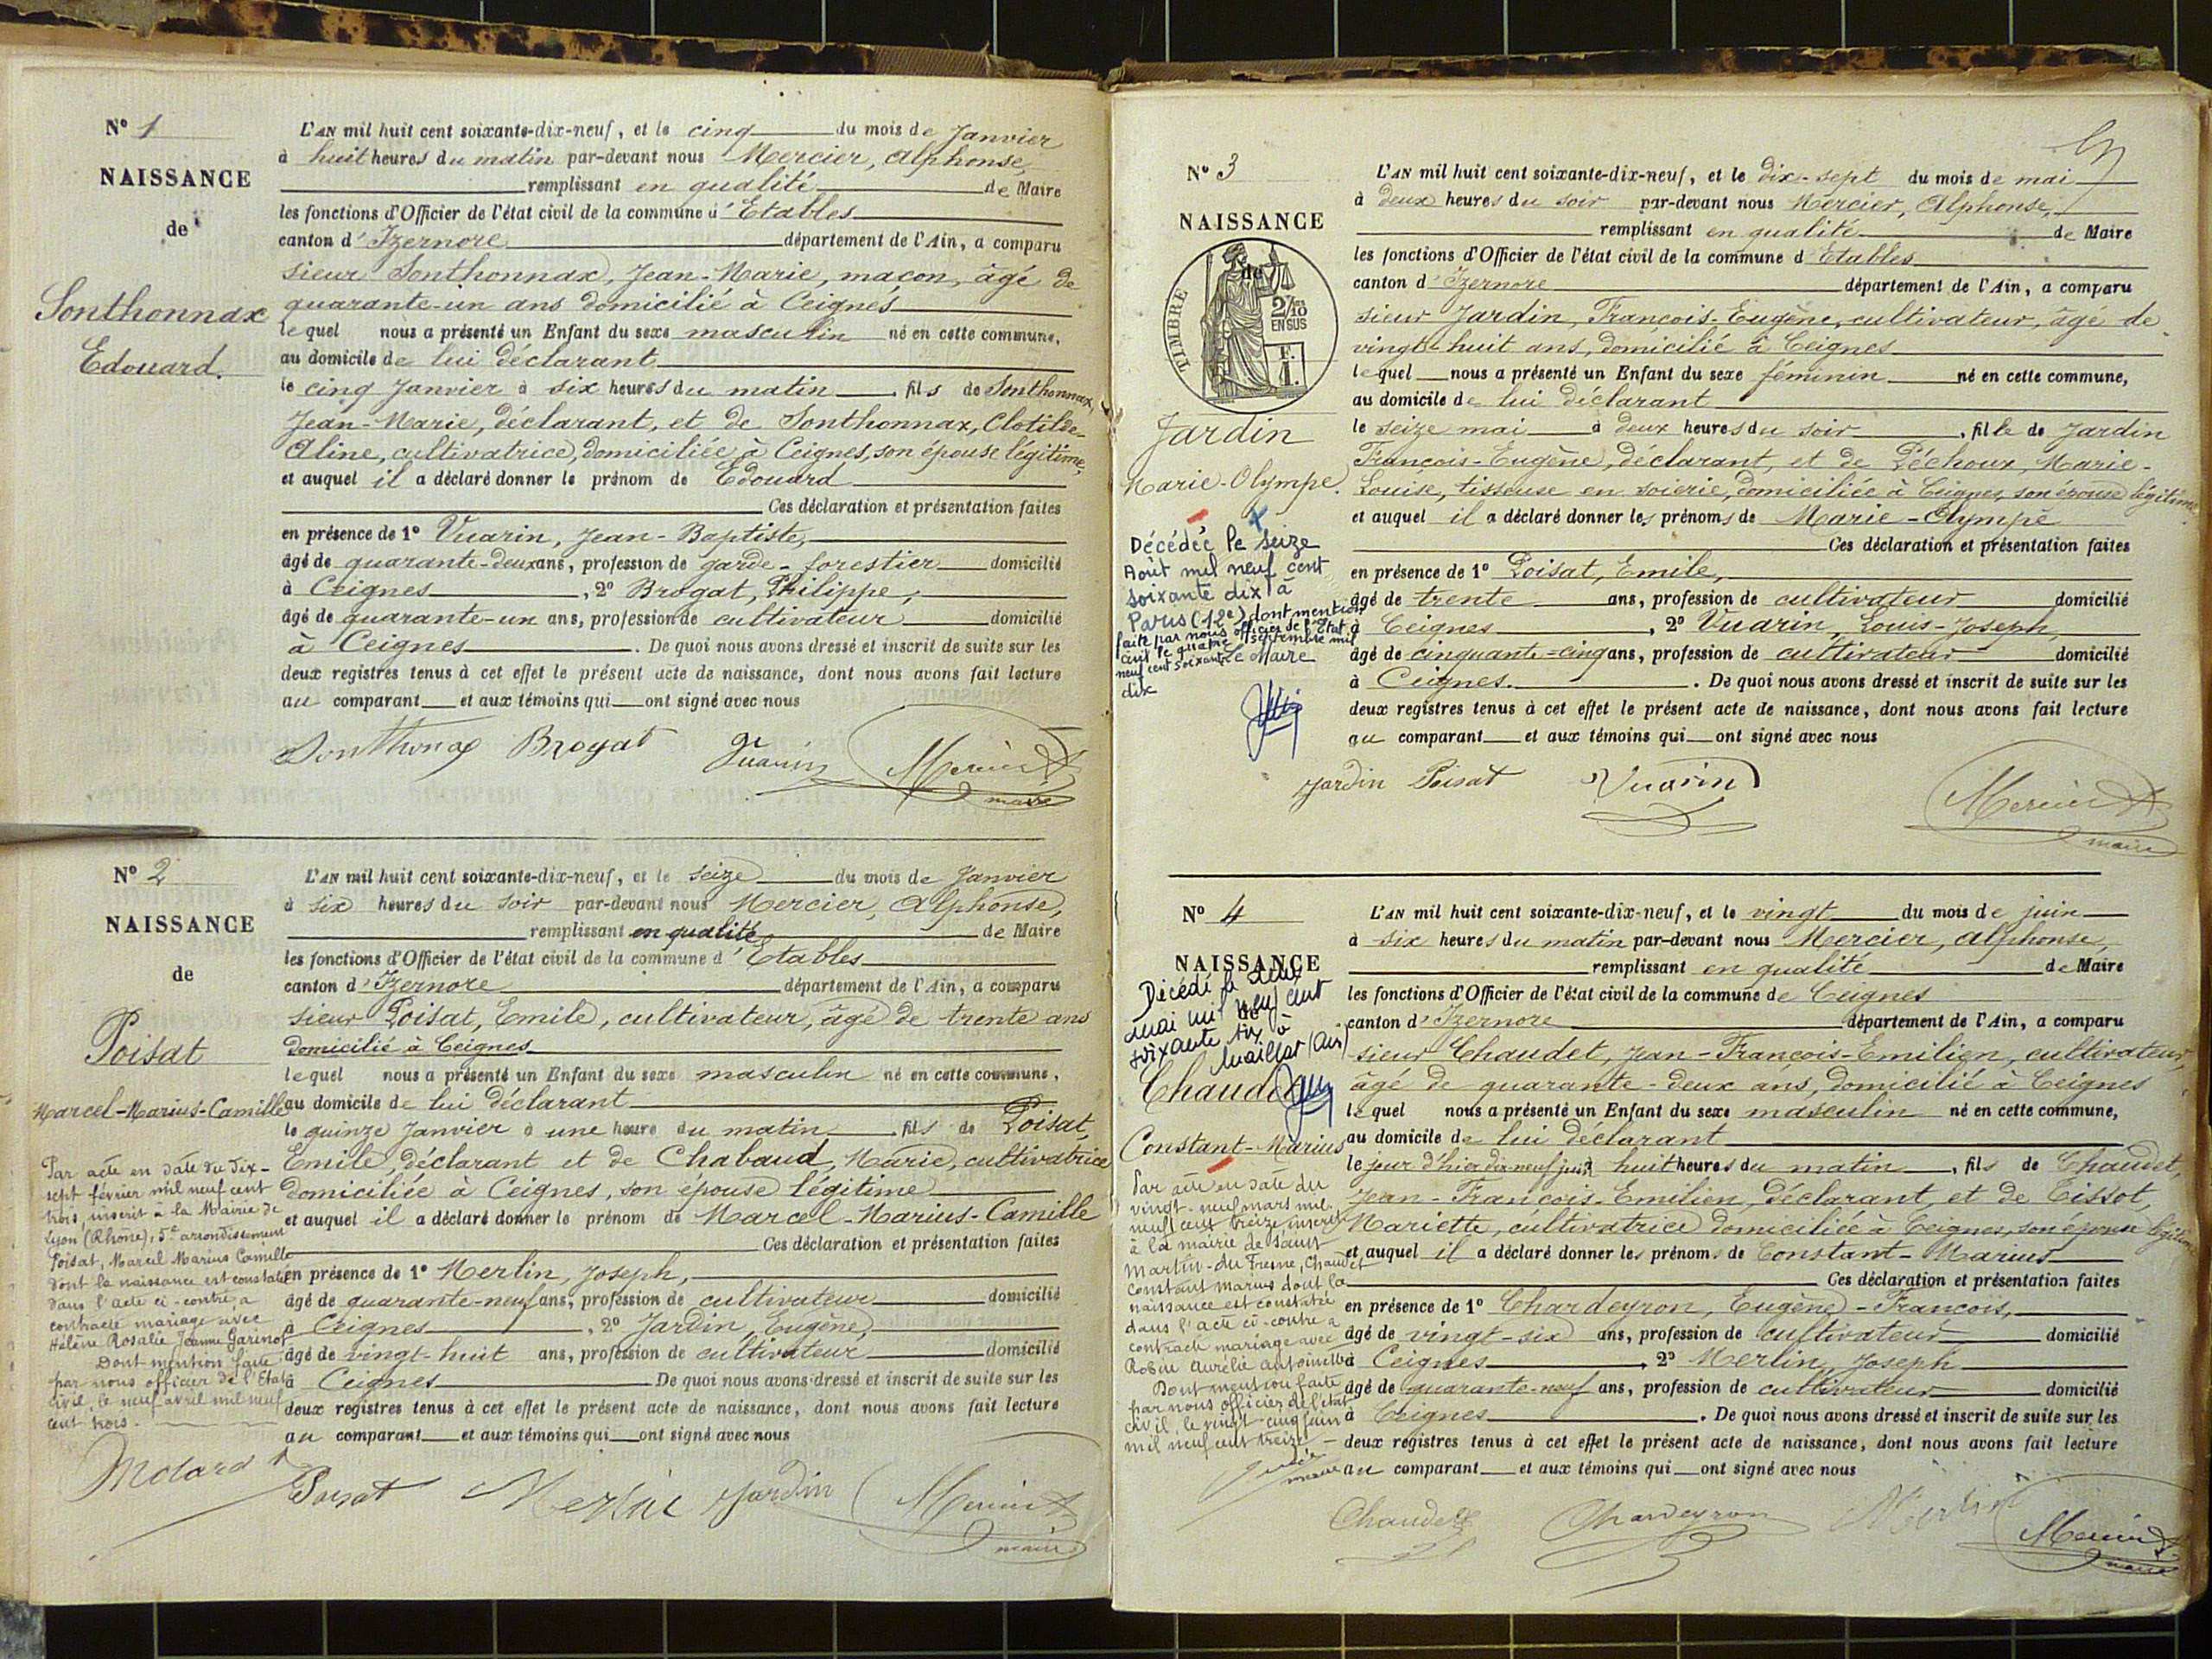 N° 1
NAISSANCE
de
Sonthonnax
Edouard.
L'AN mil huit cent soixante-dix-neuf, et le cinq du mois de Janvier
à huit heures du matin par-devant nous Mercier, Alphonse,
remplissant en qualité de Maire
les fonctions d'Officier de l'état civil de la commune d'Etables
canton d'Izernore département de l'Ain, a comparu
sieur Sonthonnax, Jean-Marie, maçon, âgé de
quarante-un ans domicilié à Ceignes
lequel nous a présenté un Enfant du sexe masculin né en cette commune,
au domicile de lui déclarant
le cinq Janvier à six heures du matin, fils de Sonthonnax,
Jean-Marie, déclarant, et de Sonthonnax, Clotilde-
Aline, cultivatrice, domiciliée à Ceignes, son épouse légitime,
et auquel il a déclaré donner le prénom de Edouard
Ces déclaration et présentation faites
en présence de 1° Vuarin, Jean-Baptiste,
âgé de quarante-deux ans, profession de garde-forestier domicilié
à Ceignes, 2° Brogat, Philippe,
âgé de quarante-un ans, profession de cultivateur domicilié
à Ceignes. De quoi nous avons dressé et inscrit de suite sur les
deux registres tenus à cet effet le présent acte de naissance, dont nous avons fait lecture
au comparant et aux témoins qui ont signé avec nous
Sonthonax Brogat Vuarin Mercier
maire
N° 2
NAISSANCE
de
Poisat
Marcel-Marius-Camille
Par acte en date du dix-
sept février mil neuf cent
trois, inscrit à la Mairie de
Lyon (Rhône), 5e arrondissement
Poisat, Marcel Marius Camille
dont la naissance est constatée
dans l'acte ci-contre, a
contracté mariage avec
Hélène Rosalie Jeanne Garinot
Dont mention faite
par nous officier de l'Etat
civil, le neuf avril mil neuf
cent trois.
L'AN mil huit cent soixante-dix-neuf, et le seize du mois de Janvier
à six heures du soir par-devant nous Mercier, Alphonse,
remplissant en qualité de Maire
les fonctions d'Officier de l'état civil de la commune d'Etables
canton d'Izernore département de l'Ain, a comparu
sieur Poisat, Emile, cultivateur, âgé de trente ans
domicilié à Ceignes
lequel nous a présenté un Enfant du sexe masculin né en cette commune,
au domicile de lui déclarant
le quinze Janvier à une heure du matin, fils de Poisat,
Emile, déclarant et de Chabaud, Marie, cultivatrice
domiciliée à Ceignes, son épouse légitime
et auquel il a déclaré donner le prénom de Marcel-Marius-Camille
Ces déclaration et présentation faites
en présence de 1° Merlin, Joseph,
âgé de quarante-neuf ans, profession de cultivateur domicilié
à Ceignes, 2° Jardin, Eugène,
âgé de vingt-huit ans, profession de cultivateur domicilié
à Ceignes De quoi nous avons dressé et inscrit de suite sur les
deux registres tenus à cet effet le présent acte de naissance, dont nous avons fait lecture
au comparant et aux témoins qui ont signé avec nous
Poisat Merlin Jardin Mercier
maire
N° 3
NAISSANCE
de
TIMBRE
2/10
EN SUS
Jardin
Marie-Olympe.
Décédée le seize
Août mil neuf cent
soixante dix à
Paris (12e), dont mention
faite par nous officier de l'Etat
civil le quatre septembre mil
neuf cent soixante
dix
Le Maire
L'AN mil huit cent soixante-dix-neuf, et le dix-sept du mois de mai
à deux heures du soir par-devant nous Mercier, Alphonse,
remplissant en qualité de Maire
les fonctions d'Officier de l'état civil de la commune d'Etables
canton d'Izernore département de l'Ain, a comparu
sieur Jardin, François-Eugène, cultivateur, âgé de
vingt-huit ans, domicilié à Ceignes
lequel nous a présenté un Enfant du sexe féminin né en cette commune,
au domicile de lui déclarant
le seize mai à deux heures du soir, fille de Jardin
François-Eugène, déclarant, et de Péchoux, Marie-
Louise, tisseuse en soierie, domiciliée à Ceignes, son épouse légitime
et auquel il a déclaré donner les prénoms de Marie-Olympe
Ces déclaration et présentation faites
en présence de 1° Poisat, Emile,
âgé de trente ans, profession de cultivateur domicilié
à Ceignes, 2° Vuarin, Louis-Joseph,
âgé de cinquante-cinq ans, profession de cultivateur domicilié
à Ceignes. De quoi nous avons dressé et inscrit de suite sur les
deux registres tenus à cet effet le présent acte de naissance, dont nous avons fait lecture
au comparant et aux témoins qui ont signé avec nous
Jardin Poisat Vuarin Mercier
maire
N° 4
NAISSANCE
Décédé le deux
mai mil neuf cent
soixante six à
Maillat (Ain)
Chaudet
Constant-Marius
Par acte en date du
vingt-neuf mars mil
neuf cent treize inscrit
à la mairie de Saint
Martin-du Fresne, Chaudet
Constant Marius dont la
naissance est constatée
dans l'acte ci-contre a
contracté mariage avec
Robin Aurélie Antoinette
Dont mention faite
par nous officier de l'état
civil, le vingt cinq juin
mil neuf cent treize
maire
L'AN mil huit cent soixante-dix-neuf, et le vingt du mois de juin
à six heures du matin par-devant nous Mercier, Alphonse,
remplissant en qualité de Maire
les fonctions d'Officier de l'état civil de la commune de Ceignes
canton d'Izernore département de l'Ain, a comparu
sieur Chaudet, Jean-François-Emilien, cultivateur,
âgé de quarante-deux ans, domicilié à Ceignes
lequel nous a présenté un Enfant du sexe masculin né en cette commune,
au domicile de lui déclarant
le jour d'hier dix neuf juin à huit heures du matin, fils de Chaudet,
Jean-François-Emilien, déclarant et de Tissot,
Mariette, cultivatrice domiciliée à Ceignes, son épouse légitime
et auquel il a déclaré donner les prénoms de Constant-Marius
Ces déclaration et présentation faites
en présence de 1° Chardeyron, Eugène-François,
âgé de vingt-six ans, profession de cultivateur domicilié
à Ceignes, 2° Merlin, Joseph
âgé de quarante-neuf ans, profession de cultivateur domicilié
à Ceignes. De quoi nous avons dressé et inscrit de suite sur les
deux registres tenus à cet effet le présent acte de naissance, dont nous avons fait lecture
au comparant et aux témoins qui ont signé avec nous
Chaudet Chardeyron Merlin Mercier
maire